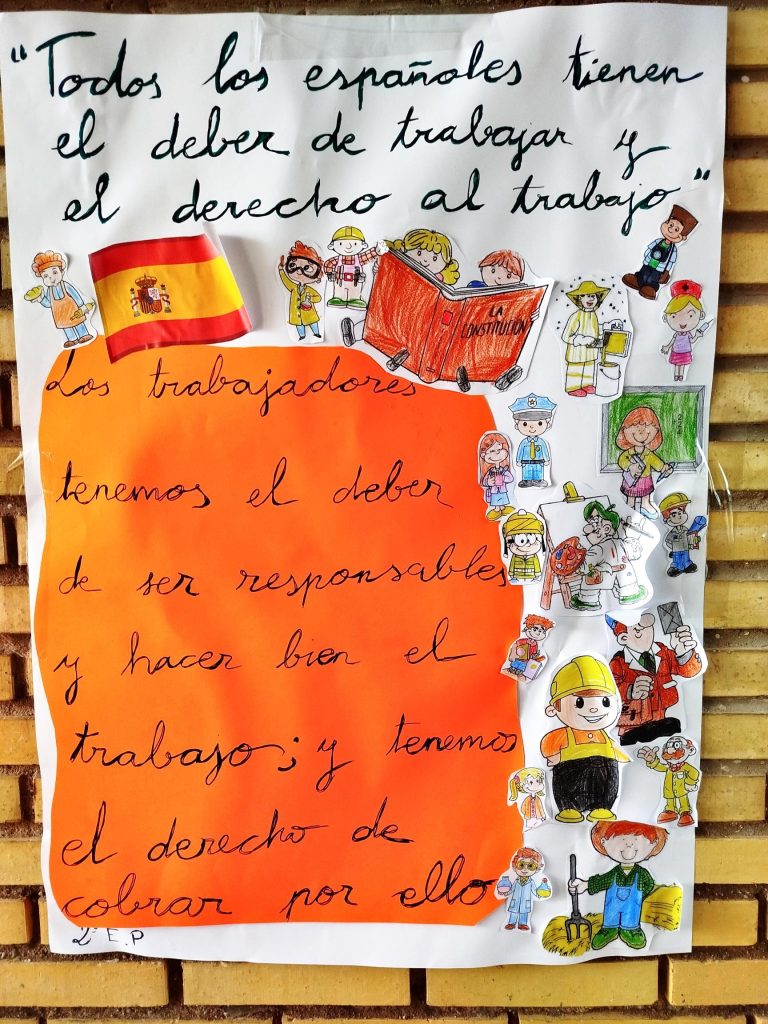 "Todos los españoles tienen
el deber de trabajar y
el derecho al trabajo"
LA
CONSTITUCIÓN
Los trabajadores
tenemos el deber
de ser responsables
y hacer bien el
trabajo; y tenemos
el derecho de
cobrar por ello
2º E.P